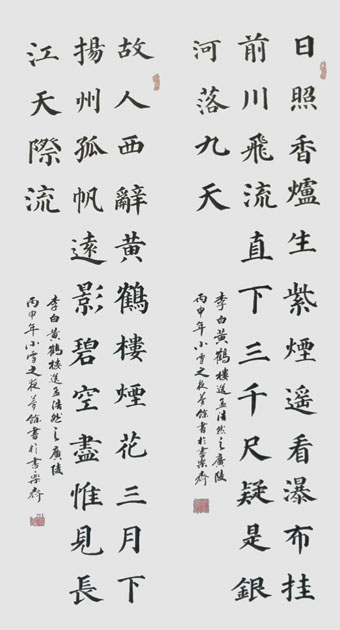 日照香爐生紫煙遙看瀑布挂
前川飛流直下三千尺疑是銀
河落九天
李白黃鶴樓送孟浩然之廣陵
丙申年小雪之夜餘書於書樂齋
故人西辭黃鶴樓煙花三月下
揚州孤帆遠影碧空盡惟見長
江天際流
李白黃鶴樓送孟浩然之廣陵
丙申年小雪之夜餘書於書樂齋